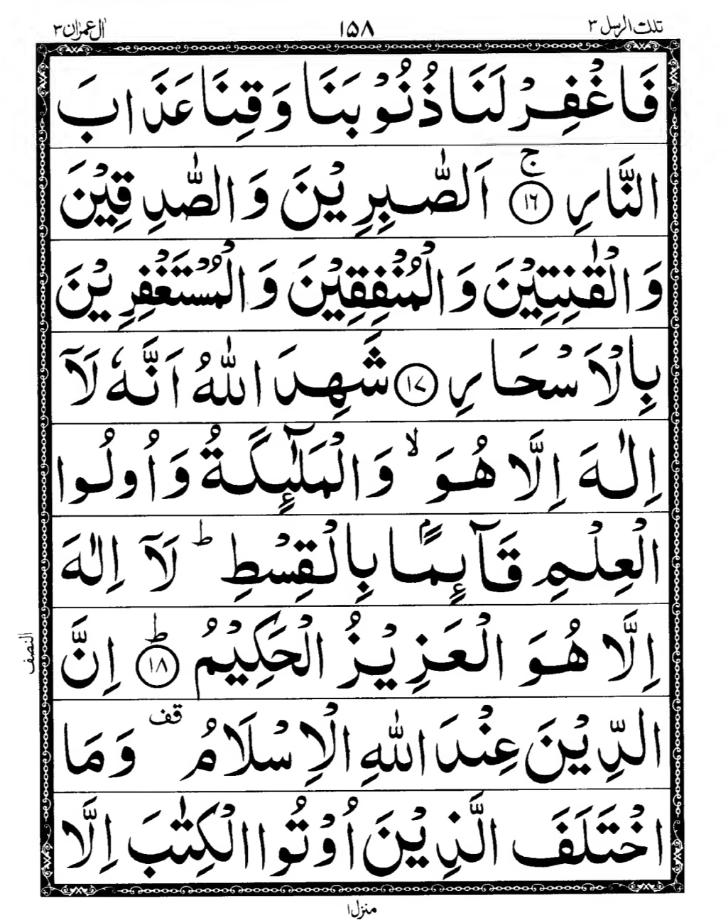 تلك الرسل ٣
١٥٨
اٰل عمرٰن ٣
فَاغْفِرْ لَنَا ذُنُوْبَنَا وَقِنَا عَذَابَ
النَّارِ ۚ ﴿١٦﴾ اَلصّٰبِرِيْنَ وَالصّٰدِقِيْنَ
وَالْقٰنِتِيْنَ وَالْمُنْفِقِيْنَ وَالْمُسْتَغْفِرِيْنَ
بِالْاَسْحَارِ ﴿١٧﴾ شَهِدَ اللّٰهُ اَنَّهٗ لَآ
اِلٰهَ اِلَّا هُوَ ۙ وَالْمَلٰٓئِكَةُ وَاُولُوا
الْعِلْمِ قَآئِمًاۢ بِالْقِسْطِ ؕ لَآ اِلٰهَ
اِلَّا هُوَ الْعَزِيْزُ الْحَكِيْمُ ؕ ﴿١٨﴾ اِنَّ
النصف
الدِّيْنَ عِنْدَ اللّٰهِ الْاِسْلَامُ قف وَمَا
اخْتَلَفَ الَّذِيْنَ اُوْتُوا الْكِتٰبَ اِلَّا
منزل ١